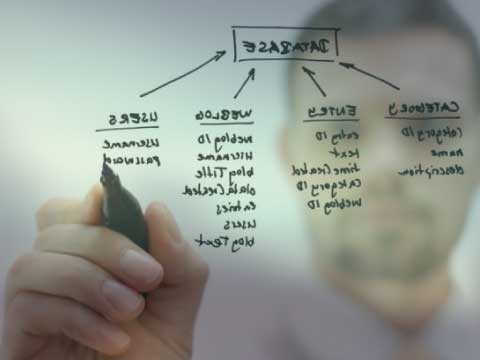 DATABASE
USERS
Username
Password
WEBLOG
WeblogID
Username
blogTitle
dateCreated
Entries
Users
blogText
ENTRY
entryID
text
timeCreated
CategoryID
WeblogID
CATEGORY
CategoryID
name
description